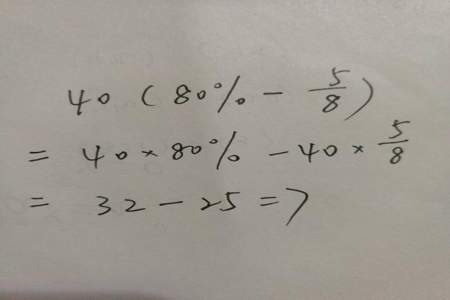 40 ( 80% - 5/8 )
= 40 × 80% - 40 × 5/8
= 32 - 25 = 7